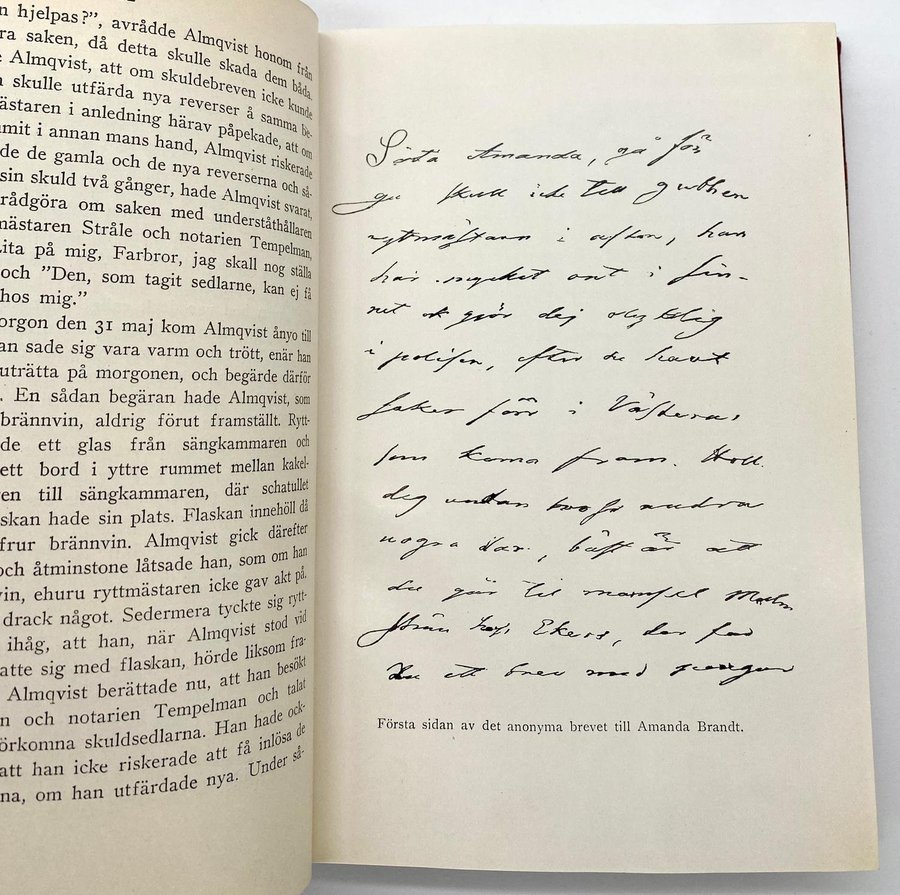 n hjelpas?", avrådde Almqvist honom från
ra saken, då detta skulle skada dem båda.
Almqvist, att om skuldebreven icke kunde
skulle utfärda nya reverser å samma be-
ästaren i anledning härav påpekade, att om
mit i annan mans hand, Almqvist riskerade
de de gamla och de nya reverserna och så-
sin skuld två gånger, hade Almqvist svarat,
rådgöra om saken med underståthållaren
mästaren Stråle och notarien Tempelman,
ita på mig, Farbror, jag skall nog ställa
och "Den, som tagit sedlarne, kan ej få
hos mig."
orgon den 31 maj kom Almqvist ånyo till
an sade sig vara varm och trött, enär han
uträtta på morgonen, och begärde därför
. En sådan begäran hade Almqvist, som
brännvin, aldrig förut framställt. Rytt-
de ett glas från sängkammaren och
ett bord i yttre rummet mellan kakel-
ren till sängkammaren, där schatullet
skan hade sin plats. Flaskan innehöll då
frur brännvin. Almqvist gick därefter
och åtminstone låtsade han, som om han
vin, ehuru ryttmästaren icke gav akt på,
drack något. Sedermera tyckte sig rytt-
ihåg, att han, när Almqvist stod vid
atte sig med flaskan, hörde liksom fra-
Almqvist berättade nu, att han besökt
n och notarien Tempelman och talat
örkomna skuldsedlarna. Han hade ock-
att han icke riskerade att få inlösa de
na, om han utfärdade nya. Under så-
Söta Amanda, gå för
gu skull icke till gubben
rytmästarn i afton, han
har mycket ont i sin-
net ok gjör dej olyklig
i polisen, efter du havt
saker förr i Västeras
som koma fram. Holl
dej undan hos andra
nogra dar, bäst är att
du går til mamsel Malm
ström hos Ekers, der fad
du ett brev med pengar
Första sidan av det anonyma brevet till Amanda Brandt.